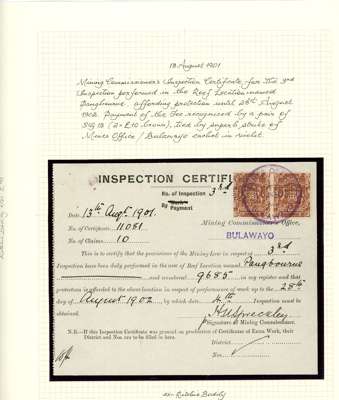 13 August 1901
Mining Commissioners Inspection Certificate for the 3rd
Inspection performed in the Reef Location named
Pangbourne, affording protection until 28th August
1902. Payment of the Fee recognised by a pair of
SG 13 (2 x £10 brown), tied by superb strike of
Mines Office / Bulawayo cachet in violet.
INSPECTION CERTIFI
No. of Inspection 3rd
By Payment
Date, 13th Augt. 1901.
Mining Commissioner's Office,
No. of Certificate: 11081
BULAWAYO
No. of Claims: 10
This is to certify that the provisions of the Mining Law in respect of 3rd
Inspection have been duly performed in the case of Reef Location named, Pangbourne
and numbered 9685 in my register and that
protection is afforded to the above location in respect of performance of work up to the 28th
day of August 1902 by which date 4th Inspection must be
obtained.
H Spreckley
Signature of Mining Commissioner.
N.B.—If this Inspection Certificate was granted on production of Certificate of Extra Work, their
District and Nos. are to be filled in here.
District
Nos.
ex-Ritchie Bodily